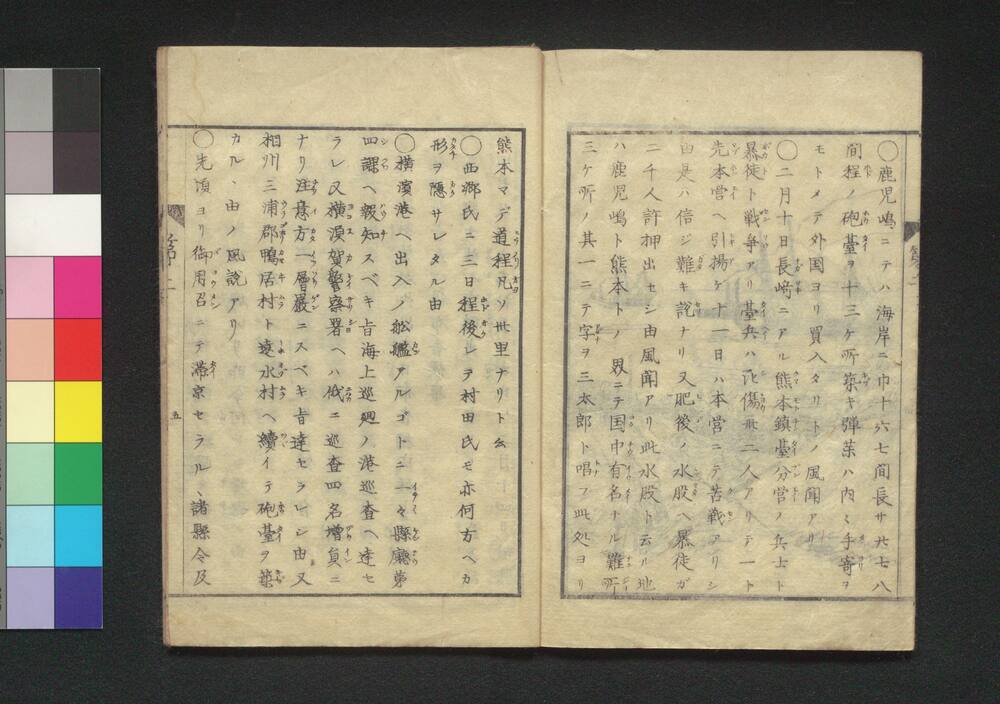 〇鹿児嶋ニテハ海岸ニ巾十六七間長サ廾七八
間程ノ砲臺ヲ十三ケ所築キ弾薬ハ内々手寄ヲ
モトメテ外国ヨリ買入タリトノ風聞アリ
〇二月十日長﨑ニアル熊本鎮臺分営ノ兵士ト
暴徒ト戦争アリ臺兵ハ死傷廾二人アリテ一ト
先本営ヘ引揚ケ十一日ハ本営ニテ苦戦アリシ
由是ハ信ジ難キ説ナリ又肥後ノ水股ヘ暴徒ガ
二千人許押出セシ由風聞アリ此水股ト云ル地
ハ鹿児嶋ト熊本トノ界ニテ国中有名ナル難所
三ケ所ノ其一ニテ字ヲ三太郎ト唱フ此処ヨリ
熊本マデ道程凡ソ丗里ナリト云
〇西郷氏ニ三日程後レヲ村田氏モ亦何方ヘカ
形ヲ隠サレタル由
〇横濵港ヘ出入ノ舩艦アルゴトニ一々縣廳第
四課ヘ報知スベキ旨海上巡廻ノ港巡査ヘ達セ
ラレ又横須賀警察署ヘハ俄ニ巡査四名増員ニ
ナリ注意方一層嚴ニスベキ旨達セラレシ由又
相州三浦郡鴨居村ト走水村ヘ續イテ砲臺ヲ築
カル、由ノ風説アリ
〇先頃ヨリ御用召ニテ滞京セラル、諸縣令及
第二
五